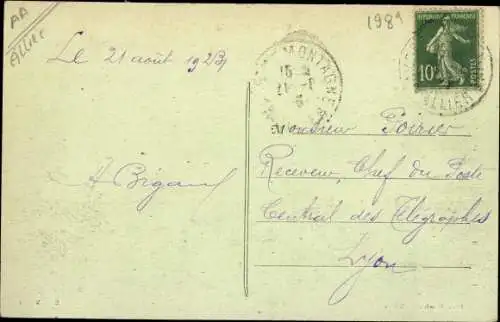 AA
Allier
1989
Le 21 août 1923
A Bigaud
RÉPUBLIQUE FRANÇAISE
10c
POSTES
MONTAGNE
ALLIER
Monsieur Poirier
Receveur, Chef du Poste
Central des Télégraphes
Lyon